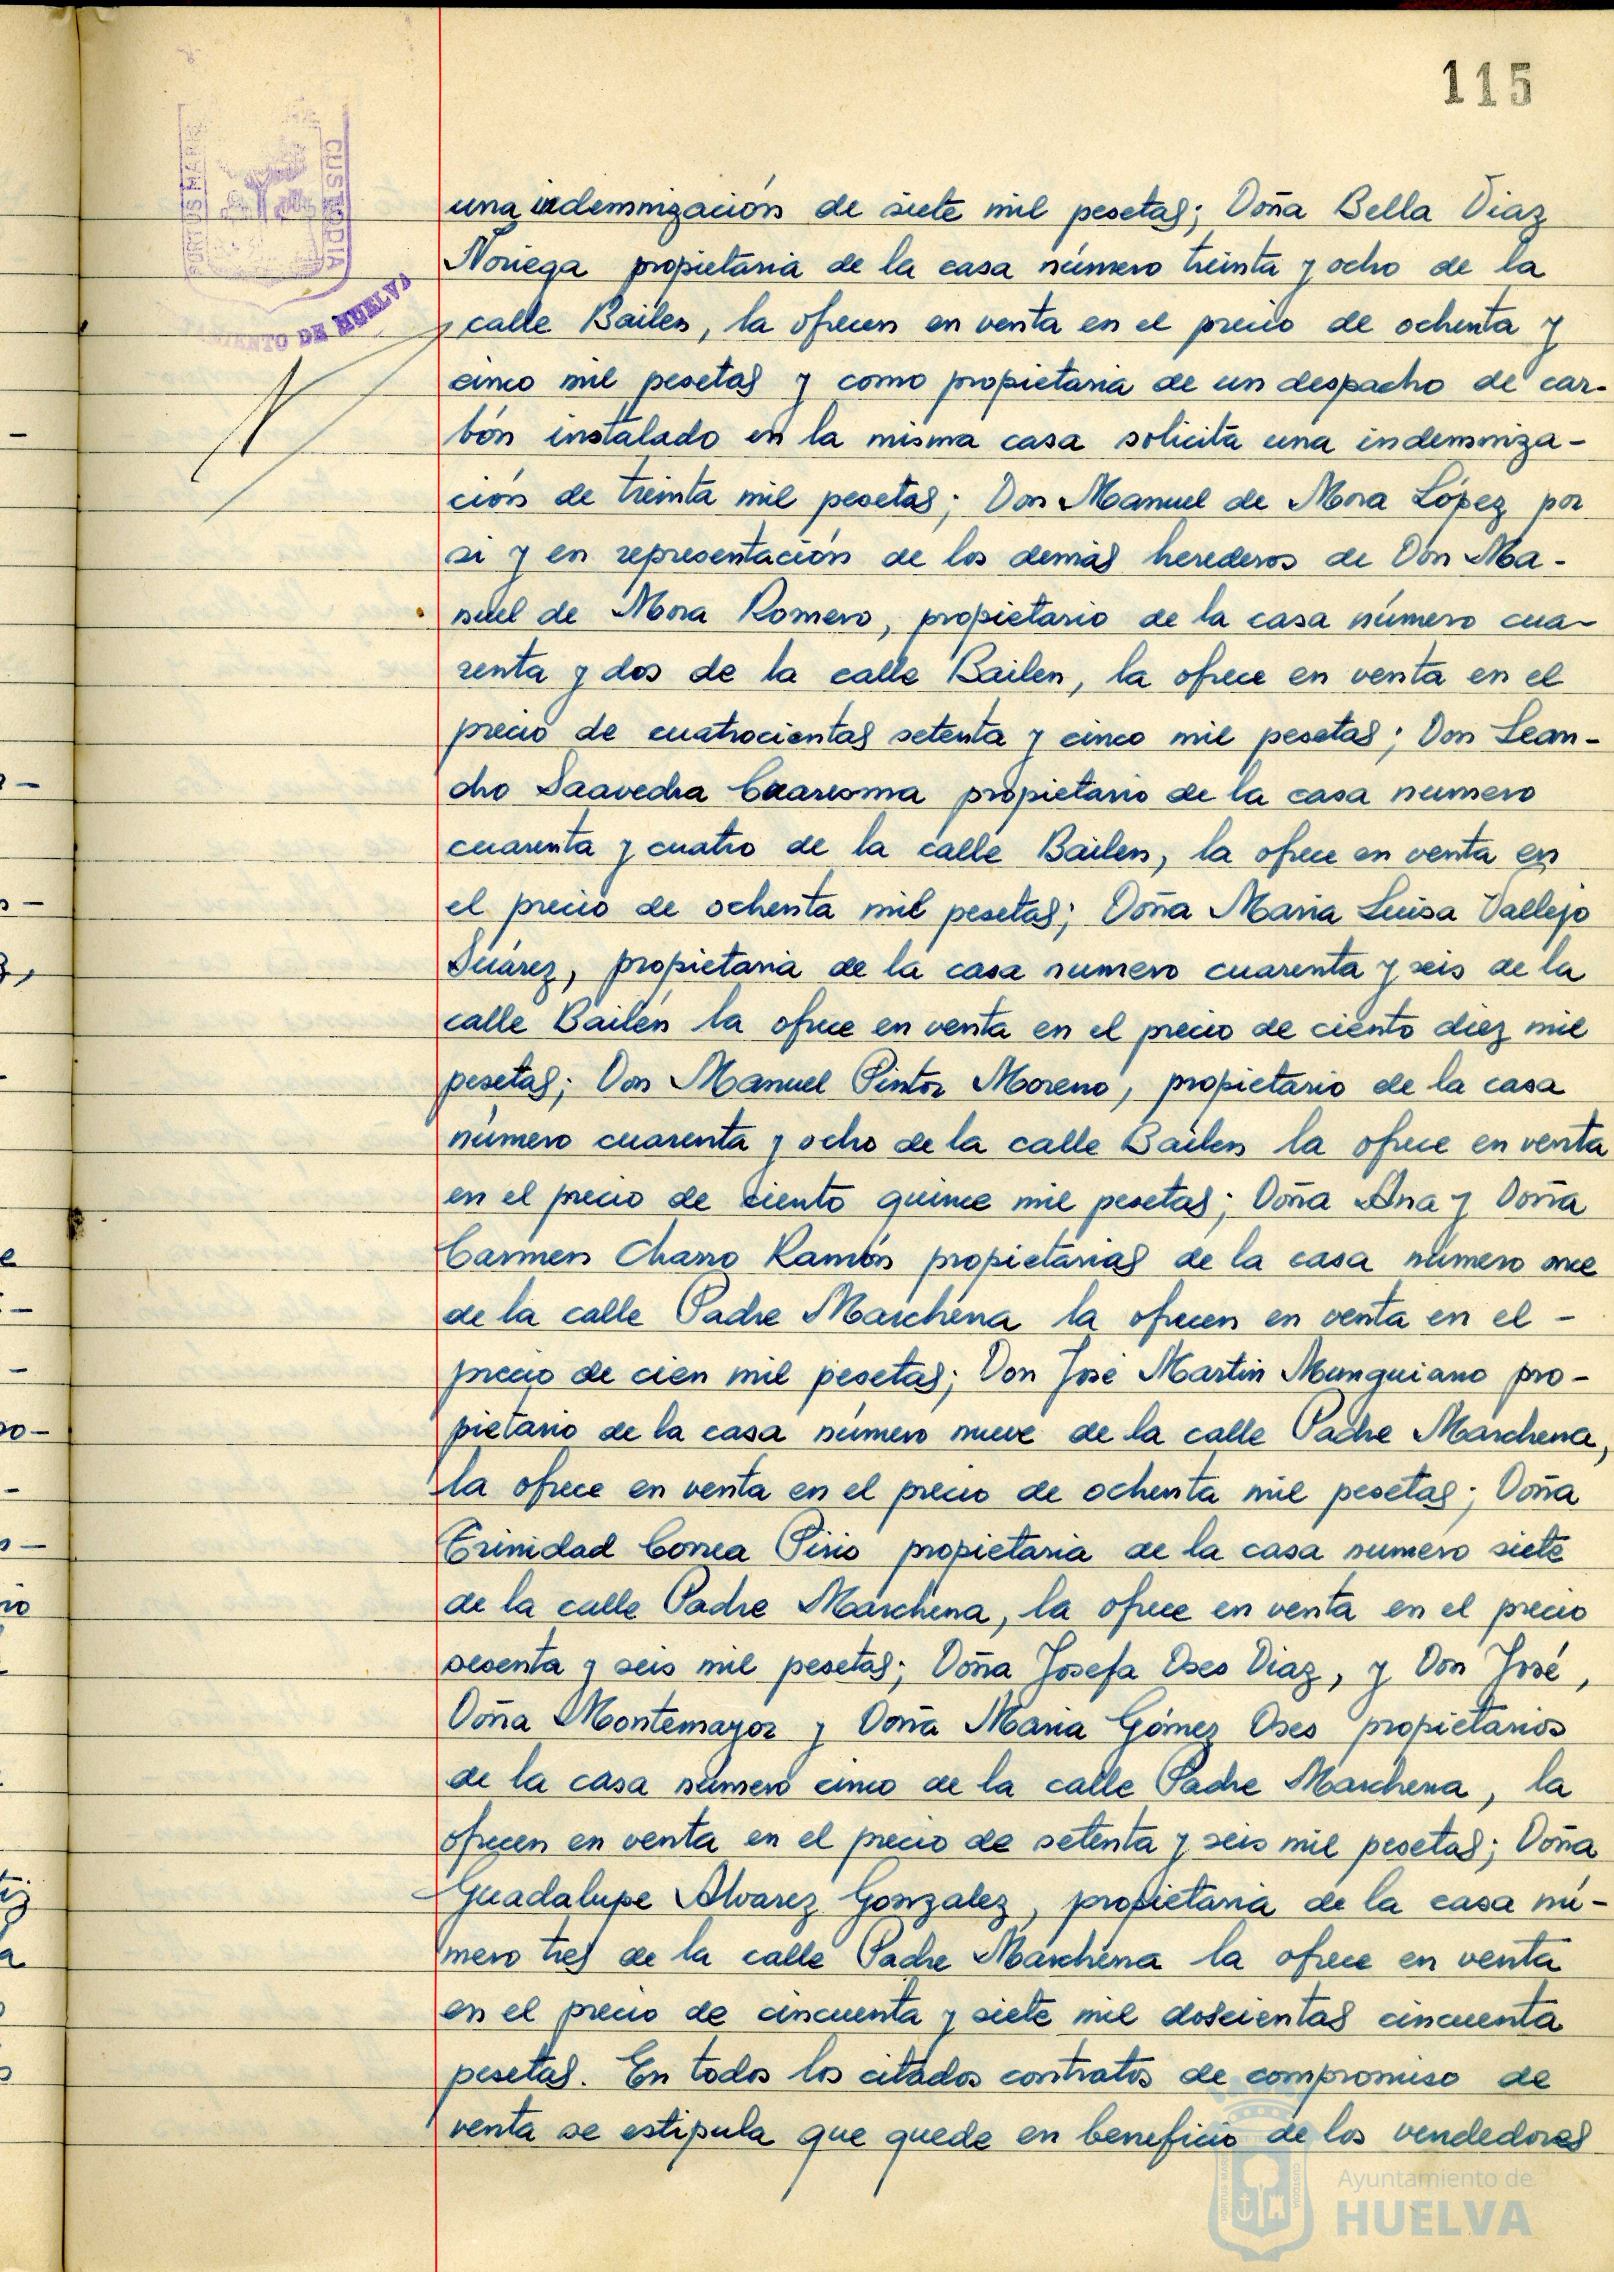 115
PORTUS MARIS
CUSTODIA
DE HUELVA
una indemnización de siete mil pesetas; Doña Bella Diaz
Noriega propietaria de la casa número treinta y ocho de la
calle Bailen, la ofrecen en venta en el precio de ochenta y
cinco mil pesetas y como propietaria de un despacho de car-
bón instalado en la misma casa solicita una indemniza-
ción de treinta mil pesetas; Don Manuel de Mora López por
si y en representación de los demás herederos de Don Ma-
nuel de Mora Romero, propietario de la casa número cua-
renta y dos de la calle Bailen, la ofrece en venta en el
precio de cuatrocientas setenta y cinco mil pesetas; Don Lean-
dro Saavedra Cuaresma propietario de la casa numero
cuarenta y cuatro de la calle Bailen, la ofrece en venta en
el precio de ochenta mil pesetas; Doña Maria Luisa Vallejo
Suárez, propietaria de la casa numero cuarenta y seis de la
calle Bailén la ofrece en venta en el precio de ciento diez mil
pesetas; Don Manuel Pintor Moreno, propietario de la casa
número cuarenta y ocho de la calle Bailen la ofrece en venta
en el precio de ciento quince mil pesetas; Doña Ana y Doña
Carmen Charro Ramón propietarias de la casa número once
de la calle Padre Marchena la ofrecen en venta en el -
precio de cien mil pesetas; Don José Martin Munguiano pro-
pietario de la casa número nueve de la calle Padre Marchena,
la ofrece en venta en el precio de ochenta mil pesetas; Doña
Trinidad Correa Pirio propietaria de la casa numero siete
de la calle Padre Marchena, la ofrece en venta en el precio
sesenta y seis mil pesetas; Doña Josefa Oses Diaz, y Don José,
Doña Montemayor y Doña Maria Gómez Oses propietarios
de la casa número cinco de la calle Padre Marchena, la
ofrecen en venta en el precio de setenta y seis mil pesetas; Doña
Guadalupe Alvarez Gonzalez, propietaria de la casa nú-
mero tres de la calle Padre Marchena la ofrece en venta
en el precio de cincuenta y siete mil doscientas cincuenta
pesetas. En todos los citados contratos de compromiso de
venta se estipula que quede en beneficio de los vendedores
Ayuntamiento de
HUELVA